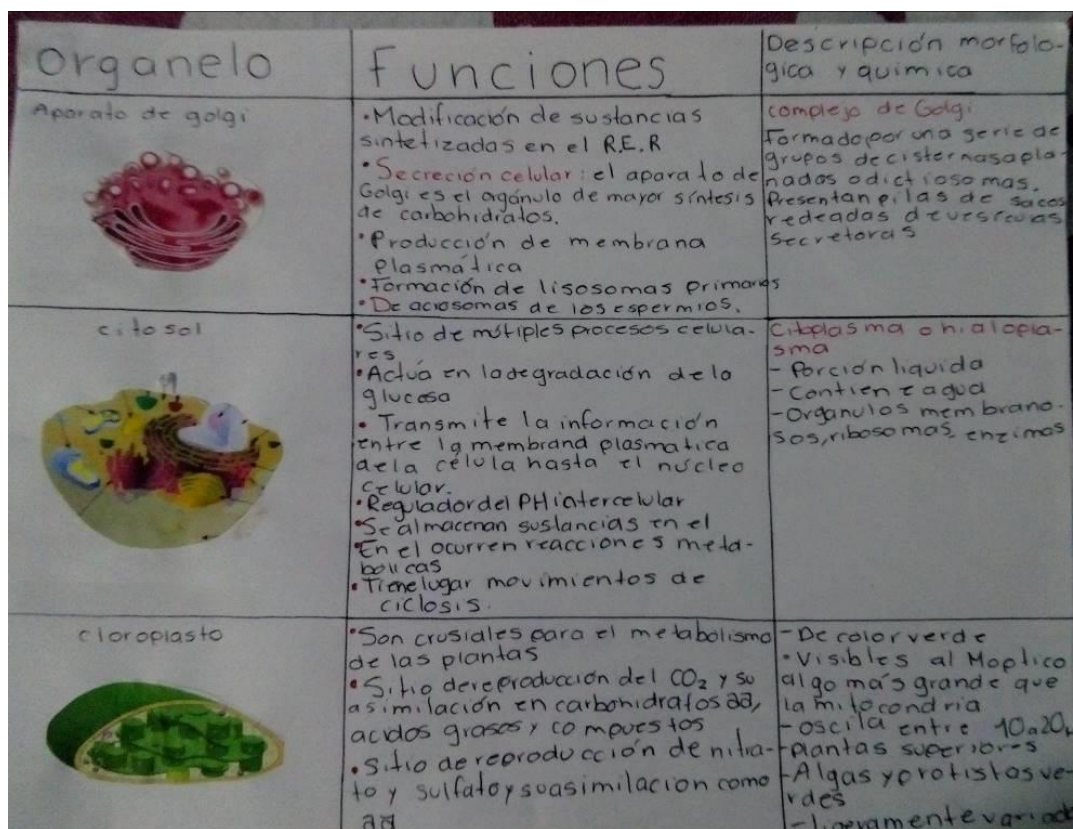 Organelo
Funciones
Descripción morfolo-
gica y quimica
Aparato de golgi
•Modificación de sustancias
sintetizadas en el R.E.R
•Secreción celular: el aparato de
Golgi es el agánulo de mayor síntesis
de carbohidratos.
•Producción de membrana
plasmática
•Formación de lisosomas primarios
•De acrosomas de los espermios.
complejo de Golgi
Formado por una serie de
grupos de cisternas apla-
nadas o dictiosomas.
Presentan pilas de sacos
redeadas de vesículas
secretoras
citosol
•Sitio de múltiples procesos celula-
res
•Actúa en la degradación de la
glucosa
• Transmite la información
entre la membrana plasmatica
de la célula hasta el núcleo
celular.
•Regulador del PH intercelular
•Se almacenan sustancias en el
•En el ocurren reacciones meta-
bolicas
•Tiene lugar movimientos de
ciclosis.
Citoplasma o hialopla-
sma
- Porción liquida
- Contiene agua
-Organulos membrano-
sos, ribosomas, enzimas
cloroplasto
•Son crusiales para el metabolismo
de las plantas
•Sitio de reproducción del CO₂ y su
asimilación en carbohidratos aa,
acidos grasos y compuestos
•Sitio de reproducción de nitra-
to y sulfato y su asimilacion como
aa
- De color verde
•Visibles al Moptico
algo más grande que
la mitocondria
-oscila entre 10a20
plantas superiores
-Algas y protistas ve-
rdes
-ligeramente